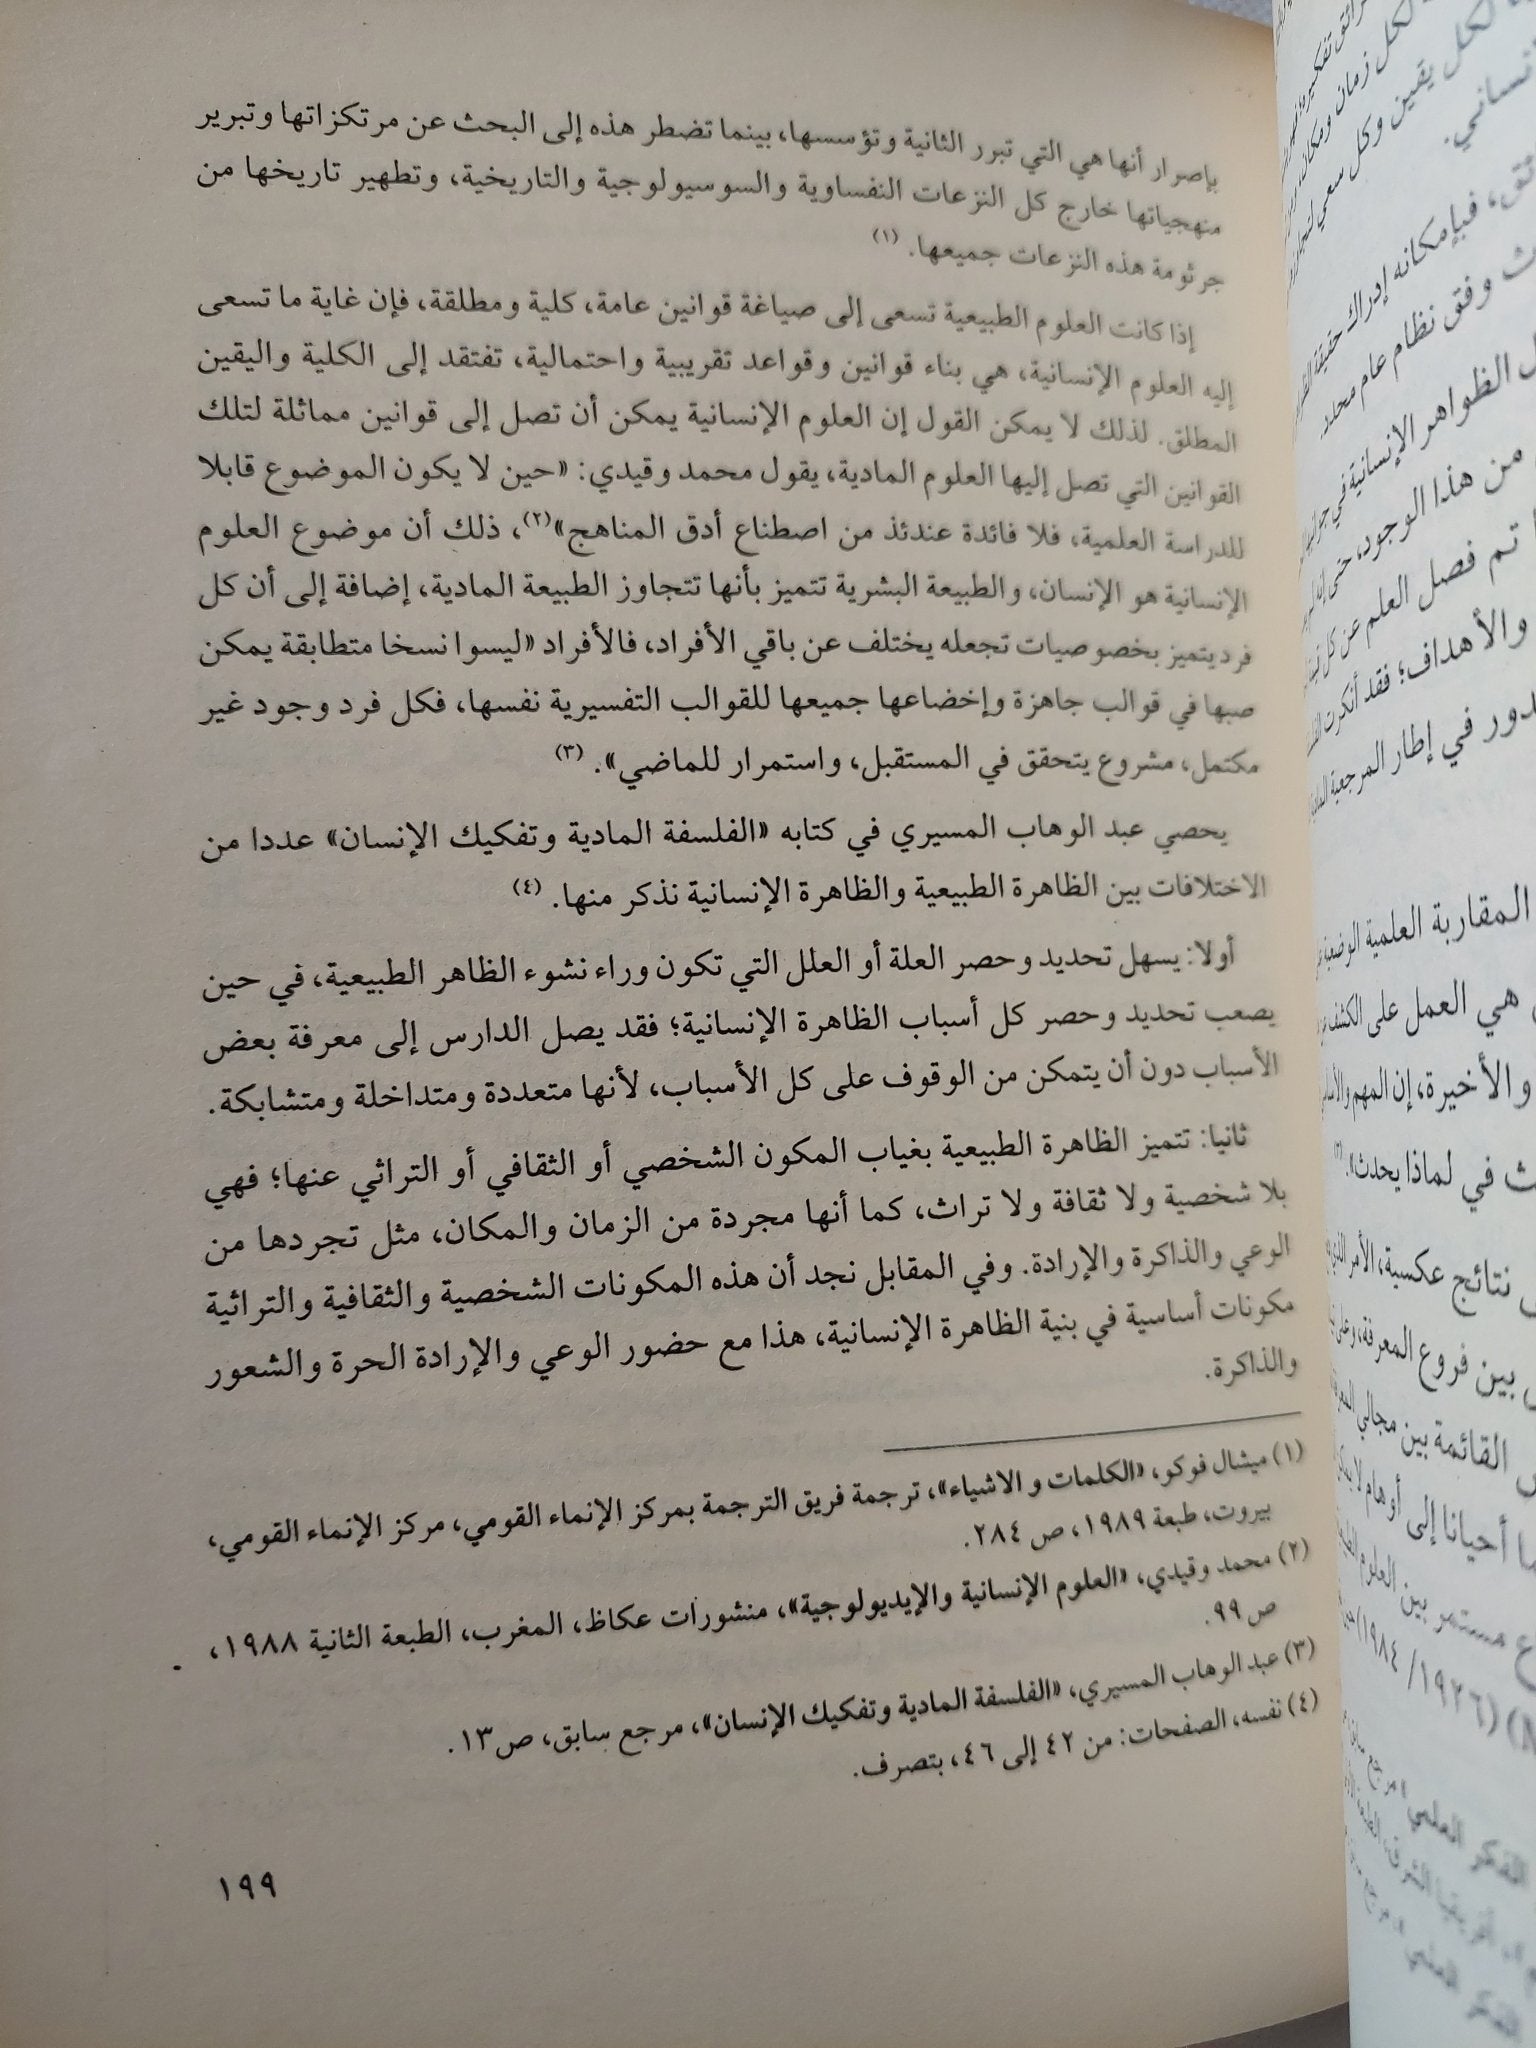 بإصرار أنها هي التي تبرر الثانية وتؤسسها، بينما تضطر هذه إلى البحث عن مرتكزاتها وتبرير
منهجياتها خارج كل النزعات النفساوية والسوسيولوجية والتاريخية، وتطهير تاريخها من
جرثومة هذه النزعات جميعها. (١)
إذا كانت العلوم الطبيعية تسعى إلى صياغة قوانين عامة، كلية ومطلقة، فإن غاية ما تسعى
إليه العلوم الإنسانية، هي بناء قوانين وقواعد تقريبية واحتمالية، تفتقد إلى الكلية واليقين
المطلق. لذلك لا يمكن القول إن العلوم الإنسانية يمكن أن تصل إلى قوانين مماثلة لتلك
القوانين التي تصل إليها العلوم المادية، يقول محمد وقيدي: «حين لا يكون الموضوع قابلا
للدراسة العلمية، فلا فائدة عندئذ من اصطناع أدق المناهج»(٢)، ذلك أن موضوع العلوم
الإنسانية هو الإنسان، والطبيعة البشرية تتميز بأنها تتجاوز الطبيعة المادية، إضافة إلى أن كل
فرد يتميز بخصوصيات تجعله يختلف عن باقي الأفراد، فالأفراد «ليسوا نسخا متطابقة يمكن
صبها في قوالب جاهزة وإخضاعها جميعها للقوالب التفسيرية نفسها، فكل فرد وجود غير
مكتمل، مشروع يتحقق في المستقبل، واستمرار للماضي». (٣)
يحصي عبد الوهاب المسيري في كتابه «الفلسفة المادية وتفكيك الإنسان» عددا من
الاختلافات بين الظاهرة الطبيعية والظاهرة الإنسانية نذكر منها. (٤)
أولا: يسهل تحديد وحصر العلة أو العلل التي تكون وراء نشوء الظاهر الطبيعية، في حين
يصعب تحديد وحصر كل أسباب الظاهرة الإنسانية؛ فقد يصل الدارس إلى معرفة بعض
الأسباب دون أن يتمكن من الوقوف على كل الأسباب، لأنها متعددة ومتداخلة ومتشابكة.
ثانيا: تتميز الظاهرة الطبيعية بغياب المكون الشخصي أو الثقافي أو التراثي عنها؛ فهي
بلا شخصية ولا ثقافة ولا تراث، كما أنها مجردة من الزمان والمكان، مثل تجردها من
الوعي والذاكرة والإرادة. وفي المقابل نجد أن هذه المكونات الشخصية والثقافية والتراثية
مكونات أساسية في بنية الظاهرة الإنسانية، هذا مع حضور الوعي والإرادة الحرة والشعور
والذاكرة.
(١) ميشال فوكو، «الكلمات و الاشياء»، ترجمة فريق الترجمة بمركز الإنماء القومي، مركز الإنماء القومي،
بيروت، طبعة ١٩٨٩، ص ٢٨٤.
(٢) محمد وقيدي، «العلوم الإنسانية والإيديولوجية»، منشورات عكاظ، المغرب، الطبعة الثانية ١٩٨٨،
ص ٩٩.
(٣) عبد الوهاب المسيري، «الفلسفة المادية وتفكيك الإنسان»، مرجع سابق، ص١٣.
(٤) نفسه، الصفحات: من ٤٢ إلى ٤٦، بتصرف.
١٩٩
لكل زمان ومكان،
لكل يقين وكل سعي
فبإمكانه إدراك حقيقة
وفق نظام عام محدد.
الظواهر الإنسانية في
من هذا الوجود، حتى
تم فصل العلم عن كل
والأهداف؛ فقد أنكرت
في إطار المرجعية
المقاربة العلمية الوضعية
هي العمل على الكشف
والأخيرة، إن المهم
في لماذا يحدث».
نتائج عكسية، الأمر الذي
بين فروع المعرفة،
القائمة بين مجالي
أحيانا إلى أوهام
مستمر بين العلوم
(١٩٢٦/ ١٩٨٤)